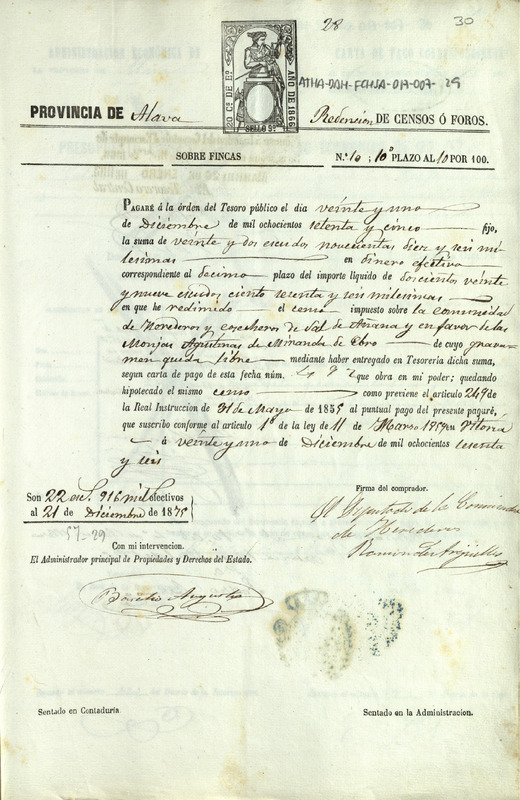 28
30
20 Cs DE Eo
AÑO DE 1866
SELLO 9º
ATHA-DAH-FCHSA-017-007-29
PROVINCIA DE Alava
Redencion DE CENSOS Ó FOROS.
SOBRE FINCAS
N.º 10; 10º PLAZO AL 10 POR 100.
PAGARÉ á la órden del Tesoro público el dia veinte y uno
de Diciembre de mil ochocientos setenta y cinco fijo,
la suma de veinte y dos escudos novecientas diez y seis mi
lesimas en dinero efectivo
correspondiente al decimo plazo del importe líquido de doscientos veinte
y nueve escudos ciento sesenta y seis milesimas
en que he redimido el censo impuesto sobre la comunidad
de Herederos y cosecheros de Sal de Añana y en favor de las
Monjas Agustinas de Miranda de Ebro de cuyo grava-
men queda libre mediante haber entregado en Tesorería dicha suma,
segun carta de pago de esta fecha núm. que obra en mi poder; quedando
hipotecado el mismo censo como previene el artículo 249 de
la Real Instruccion de 31 de Mayo de 1855 al puntual pago del presente pagaré,
que suscribo conforme al artículo 1º de la ley de 11 de Marzo 1859 en Vitoria
á veinte y uno de Diciembre de mil ochocientos sesenta
y seis
Son 22 esc.s 916 mil.s efectivos
al 21 de Diciembre de 1875
57-29
Firma del comprador.
El Diputado de la Comunidad
de Herederos
Ramon Fez Argüelles
Con mi intervencion.
El Administrador principal de Propiedades y Derechos del Estado.
Augustin
Sentado en Contaduría.
Sentado en la Administracion.